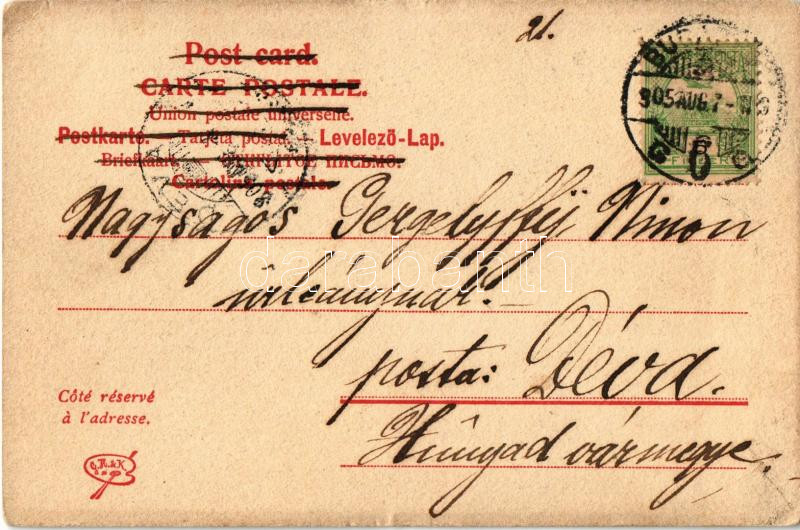 21.
Post card.
CARTE POSTALE.
Union postale universelle.
Postkarte. — Tarjeta postal. Levelező-Lap.
Briefkaart. — ОТКРЫТОЕ ПИСЬМО.
Cartolina postale.
BU
905 AUG. 7
6
Nagyságos Gergelyffy Ninon
úrleánynak. —
darabanth
posta: Déva.
Hunyad vármegye.
Côté réservé
à l'adresse.